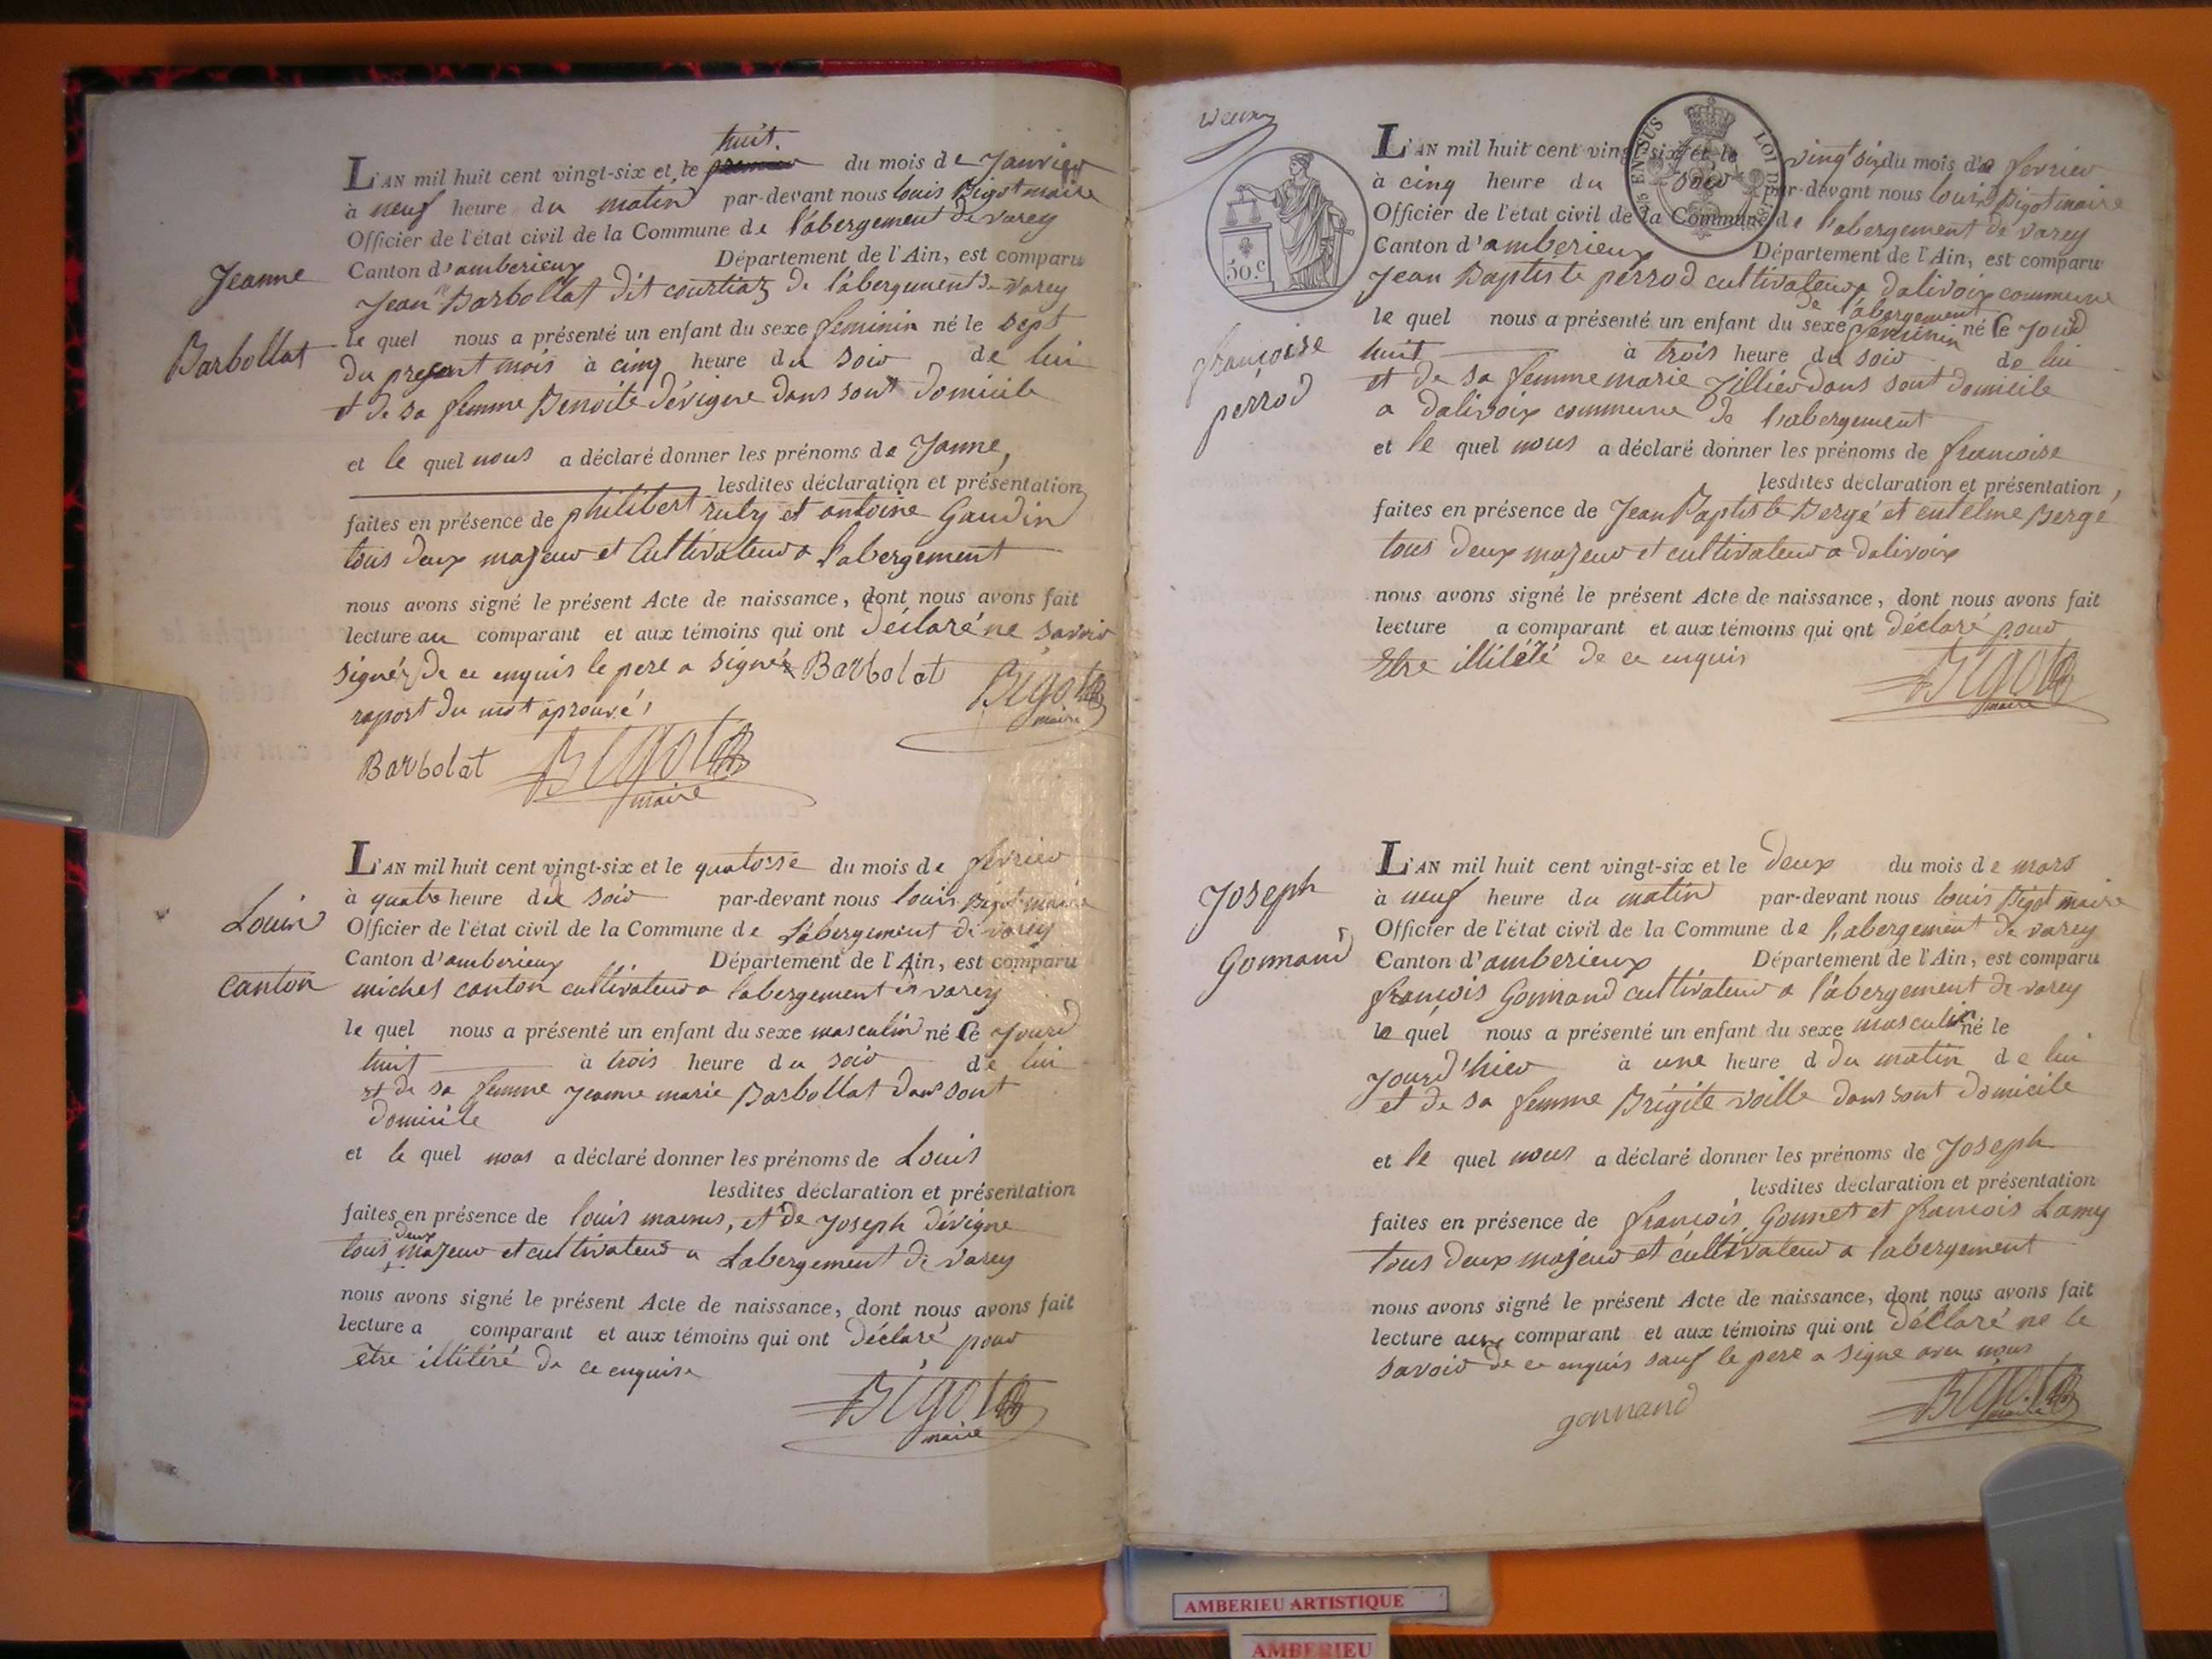 huit.
L'AN mil huit cent vingt-six et le du mois de Janvier
à neuf heure du matin par-devant nous louis Bigot maire
Officier de l'état civil de la Commune de l'abergement de varey
Canton d'amberieux Département de l'Ain, est comparu
Jeanne
Jean Barbollat dit courtiaz de l'abergement de varey
le quel nous a présenté un enfant du sexe feminin né le sept
Barbollat
du present mois à cinq heure du soir de lui
et de sa femme Benoite dévigne dans sont domicile
et le quel nous a déclaré donner les prénoms de Janne,
lesdites déclaration et présentation
faites en présence de philibert ruby et antoine Gaudin
tous deux majeur et Cultivateur a l'abergement
nous avons signé le présent Acte de naissance, dont nous avons fait
lecture au comparant et aux témoins qui ont déclaré ne savoir
signér de ce enquis le pere a signé Barbolat Bigot
maire
raport du mot aprouvé
Barbolat Bigot
maire
L'AN mil huit cent vingt-six et le quatorse du mois de fevrier
à quatre heure du soir par-devant nous louis Bigot maire
Louis
Officier de l'état civil de la Commune de L'abergement de varey
Canton d'amberieux Département de l'Ain, est comparu
canton
michel canton cultivateur a l'abergement de varey
le quel nous a présenté un enfant du sexe masculin né Ce jourd
huit à trois heure du soir de lui
et de sa femme jeanne marie Barbollat dans sont
domicile
et le quel nous a déclaré donner les prénoms de Louis
lesdites déclaration et présentation
faites en présence de louis et de joseph dévigne
tous deux majeur et cultivateur a Labergement de varey
nous avons signé le présent Acte de naissance, dont nous avons fait
lecture a comparant et aux témoins qui ont déclaré pour
être illitéré de ce enquis
Bigot
maire
50.C
ENSUS LOI DE
L'AN mil huit cent vingt-six et le vingt six du mois de fevrier
à cinq heure du soir par-devant nous louis Bigot maire
Officier de l'état civil de la Commune de l'abergement de varey
Canton d'amberieux Département de l'Ain, est comparu
Jean Baptiste perrod cultivateur a dalivoix commune
de l'abergement
le quel nous a présenté un enfant du sexe feminin né Ce jourd
françoise
huit à trois heure du soir de lui
perrod
et de sa femme marie dans sont domicile
a dalivoix commune de l'abergement
et le quel nous a déclaré donner les prénoms de francoise
lesdites déclaration et présentation,
faites en présence de Jean Baptiste Bergé et entelme Bergé
tous deux majeur et cultivateur a dalivoix
nous avons signé le présent Acte de naissance, dont nous avons fait
lecture a comparant et aux témoins qui ont déclaré pour
Etre illitéré de ce enquis
Bigot
maire
L'AN mil huit cent vingt-six et le deux du mois de mars
à neuf heure du matin par-devant nous louis Bigot maire
Joseph
Officier de l'état civil de la Commune de l'abergement de varey
Gonnand
Canton d'amberieux Département de l'Ain, est comparu
françois Gonnand cultivateur a l'abergement de varey
le quel nous a présenté un enfant du sexe masculin né le
jourd'hier à une heure d du matin de lui
et de sa femme Brigite voille dans sont domicile
et le quel nous a déclaré donner les prénoms de Joseph
lesdites déclaration et présentation
faites en présence de françois Gonnet et francois Lamy
tous deux majeur et cultivateur a l'abergement
nous avons signé le présent Acte de naissance, dont nous avons fait
lecture aux comparant et aux témoins qui ont déclaré ne le
savoir de ce enquis sauf le pere a signe avec nous
gonnand
Bigot
maire
AMBERIEU ARTISTIQUE
AMBERIEU